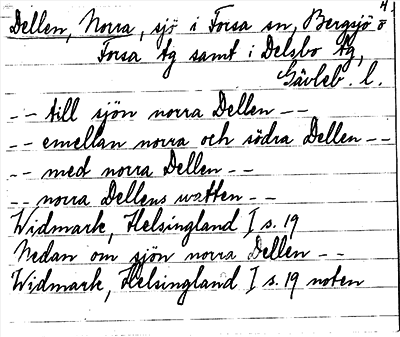 Dellen, Norra, sjö i Forsa sn, Bergsjö o
Forsa tg samt i Delsbo tg,
Gävleb. l.
-- till sjön norra Dellen --
-- emellan norra och södra Dellen --
-- med norra Dellen --
-- norra Dellens watten --
Widmark, Helsingland I s. 19
Nedan om sjön norra Dellen --
Widmark, Helsingland I s. 19 noten